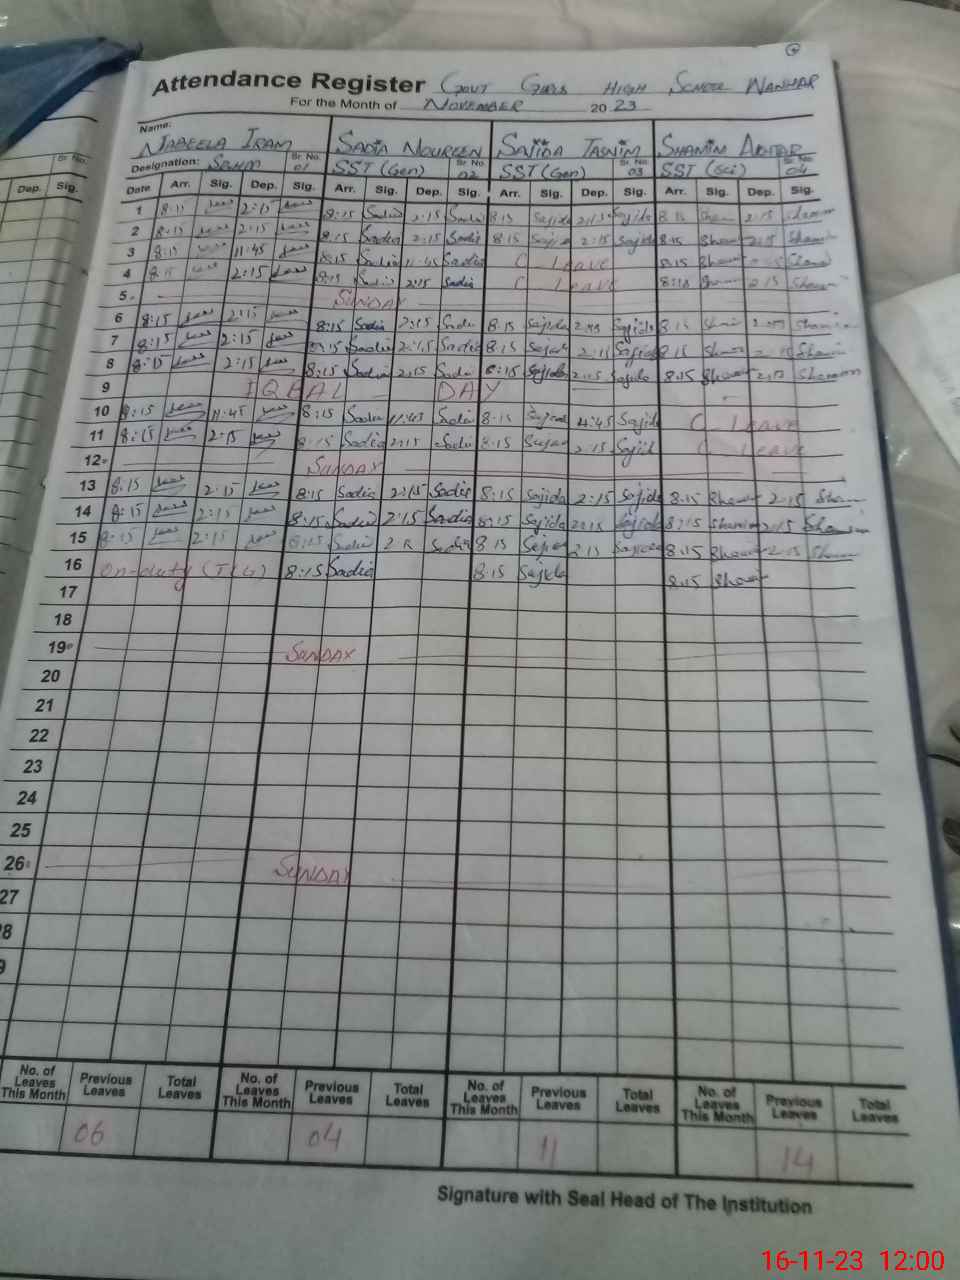 Attendance Register GOVT GIRLS HIGH SCHOOL NANHAR
For the Month of NOVEMBER 2023
Name: NABEELA IRAM SADIA NOUREEN SAJIDA TASNIM SHAMIM AKHTAR
Designation: Sr. No. 01 SST (Gen) Sr. No. 02 SST (Gen) Sr. No. 03 SST (Sci) Sr. No. 04
Dep. Sig. Date Arr. Sig. Dep. Sig. Arr. Sig. Dep. Sig. Arr. Sig. Dep. Sig. Arr. Sig. Dep. Sig.
1 8:15 2:15 8:15 Sadia 2:15 Sadia 8:15 Sajida 2:15 Sajida 8:15 Sham 2:15 Shamim
2 8:15 2:15 8:15 Sadia 2:15 Sadia 8:15 Sajida 2:15 Sajida 8:15 Sham 2:15 Shamim
3 8:15 11:45 8:15 Sadia 11:45 Sadia C Leave 8:15 Sham
4 8:15 2:15 8:15 Sadia 2:15 Sadia C Leave 8:15 Sham 2:15 Sham
5 SUNDAY
6 8:15 2:15 8:15 Sadia 2:15 Sadia 8:15 Sajida Sajida 8:15 Sham Shamim
7 8:15 2:15 8:15 Sadia 2:15 Sadia 8:15 Sajida 2:15 Sajida 8:15 Sham 2:15 Shamim
8 8:15 2:15 8:15 Sadia 2:15 Sadia 8:15 Sajida 2:15 Sajida 8:15 Sham 2:15 Shamim
9 IQBAL DAY
10 8:15 11:45 8:15 Sadia 11:45 Sadia 8:15 Sajida 4:45 Sajida C Leave
11 8:15 2:15 8:15 Sadia 2:15 Sadia 8:15 Sajida 2:15 Sajid C Leave
12 SUNDAY
13 8:15 2:15 8:15 Sadia 2:15 Sadia 8:15 Sajida 2:15 Sajida 8:15 Sham 2:15 Sham
14 8:15 2:15 8:15 Sadia 2:15 Sadia 8:15 Sajida 2:15 Sajida 8:15 Shamim 2:15 Shamim
15 8:15 2:15 8:15 Sadia Sadia 8:15 Sajida 2:15 Sajida 8:15 Sham 2:15 Sham
16 On-duty 8:15 Sadia 8:15 Sajida 8:15 Sham
17
18
19 SUNDAY
20
21
22
23
24
25
26 SUNDAY
27
8
9
No. of Leaves This Month Previous Leaves Total Leaves No. of Leaves This Month Previous Leaves Total Leaves No. of Leaves This Month Previous Leaves Total Leaves No. of Leaves This Month Previous Leaves Total Leaves
06 04 11 14
Signature with Seal Head of The Institution
16-11-23 12:00